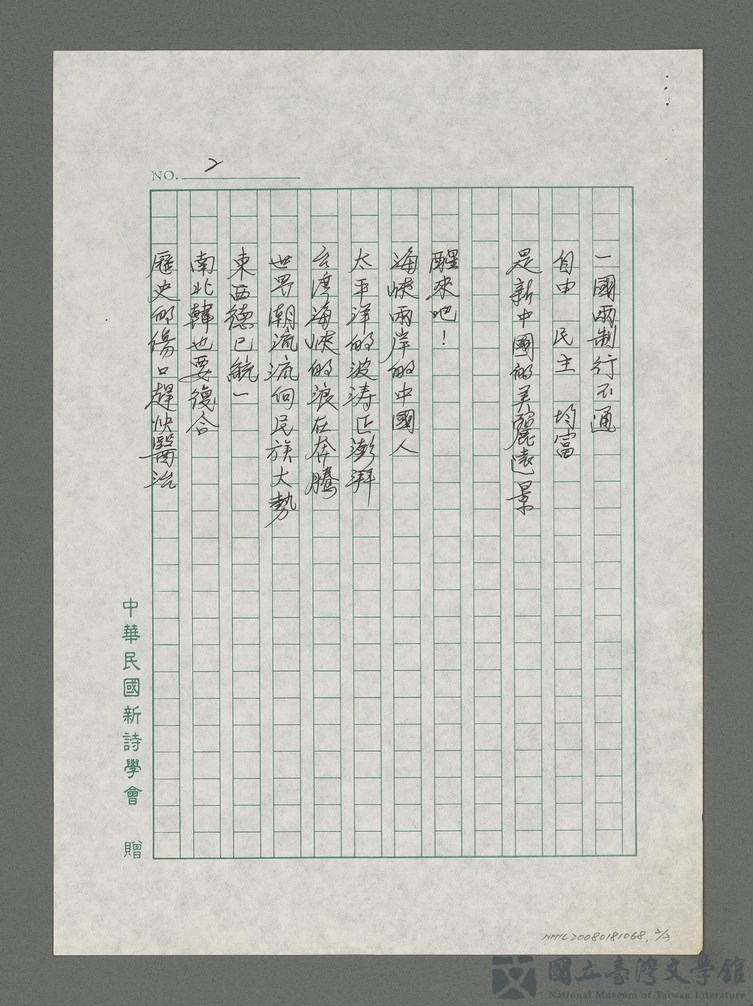 NO. 2
一國兩制行不通
自由 民主 均富
是新中國的美麗遠景
醒來吧！
海峽兩岸的中國人
太平洋的波涛正澎湃
台湾海峽的浪在奔騰
世界潮流流向民族大勢
東西德已統一
南北韓也要復合
歷史的傷口趕快醫治
中華民國新詩學會 贈
NMTL20080181068, 2/3
國立臺灣文學館
National Museum of Taiwan Literature